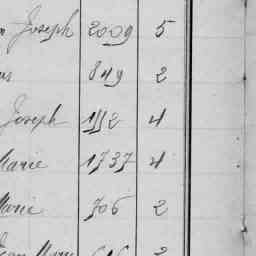 Joseph 2009 5
849 2
Joseph 1112 4
Marie 1737 4
Marie 706 2
2